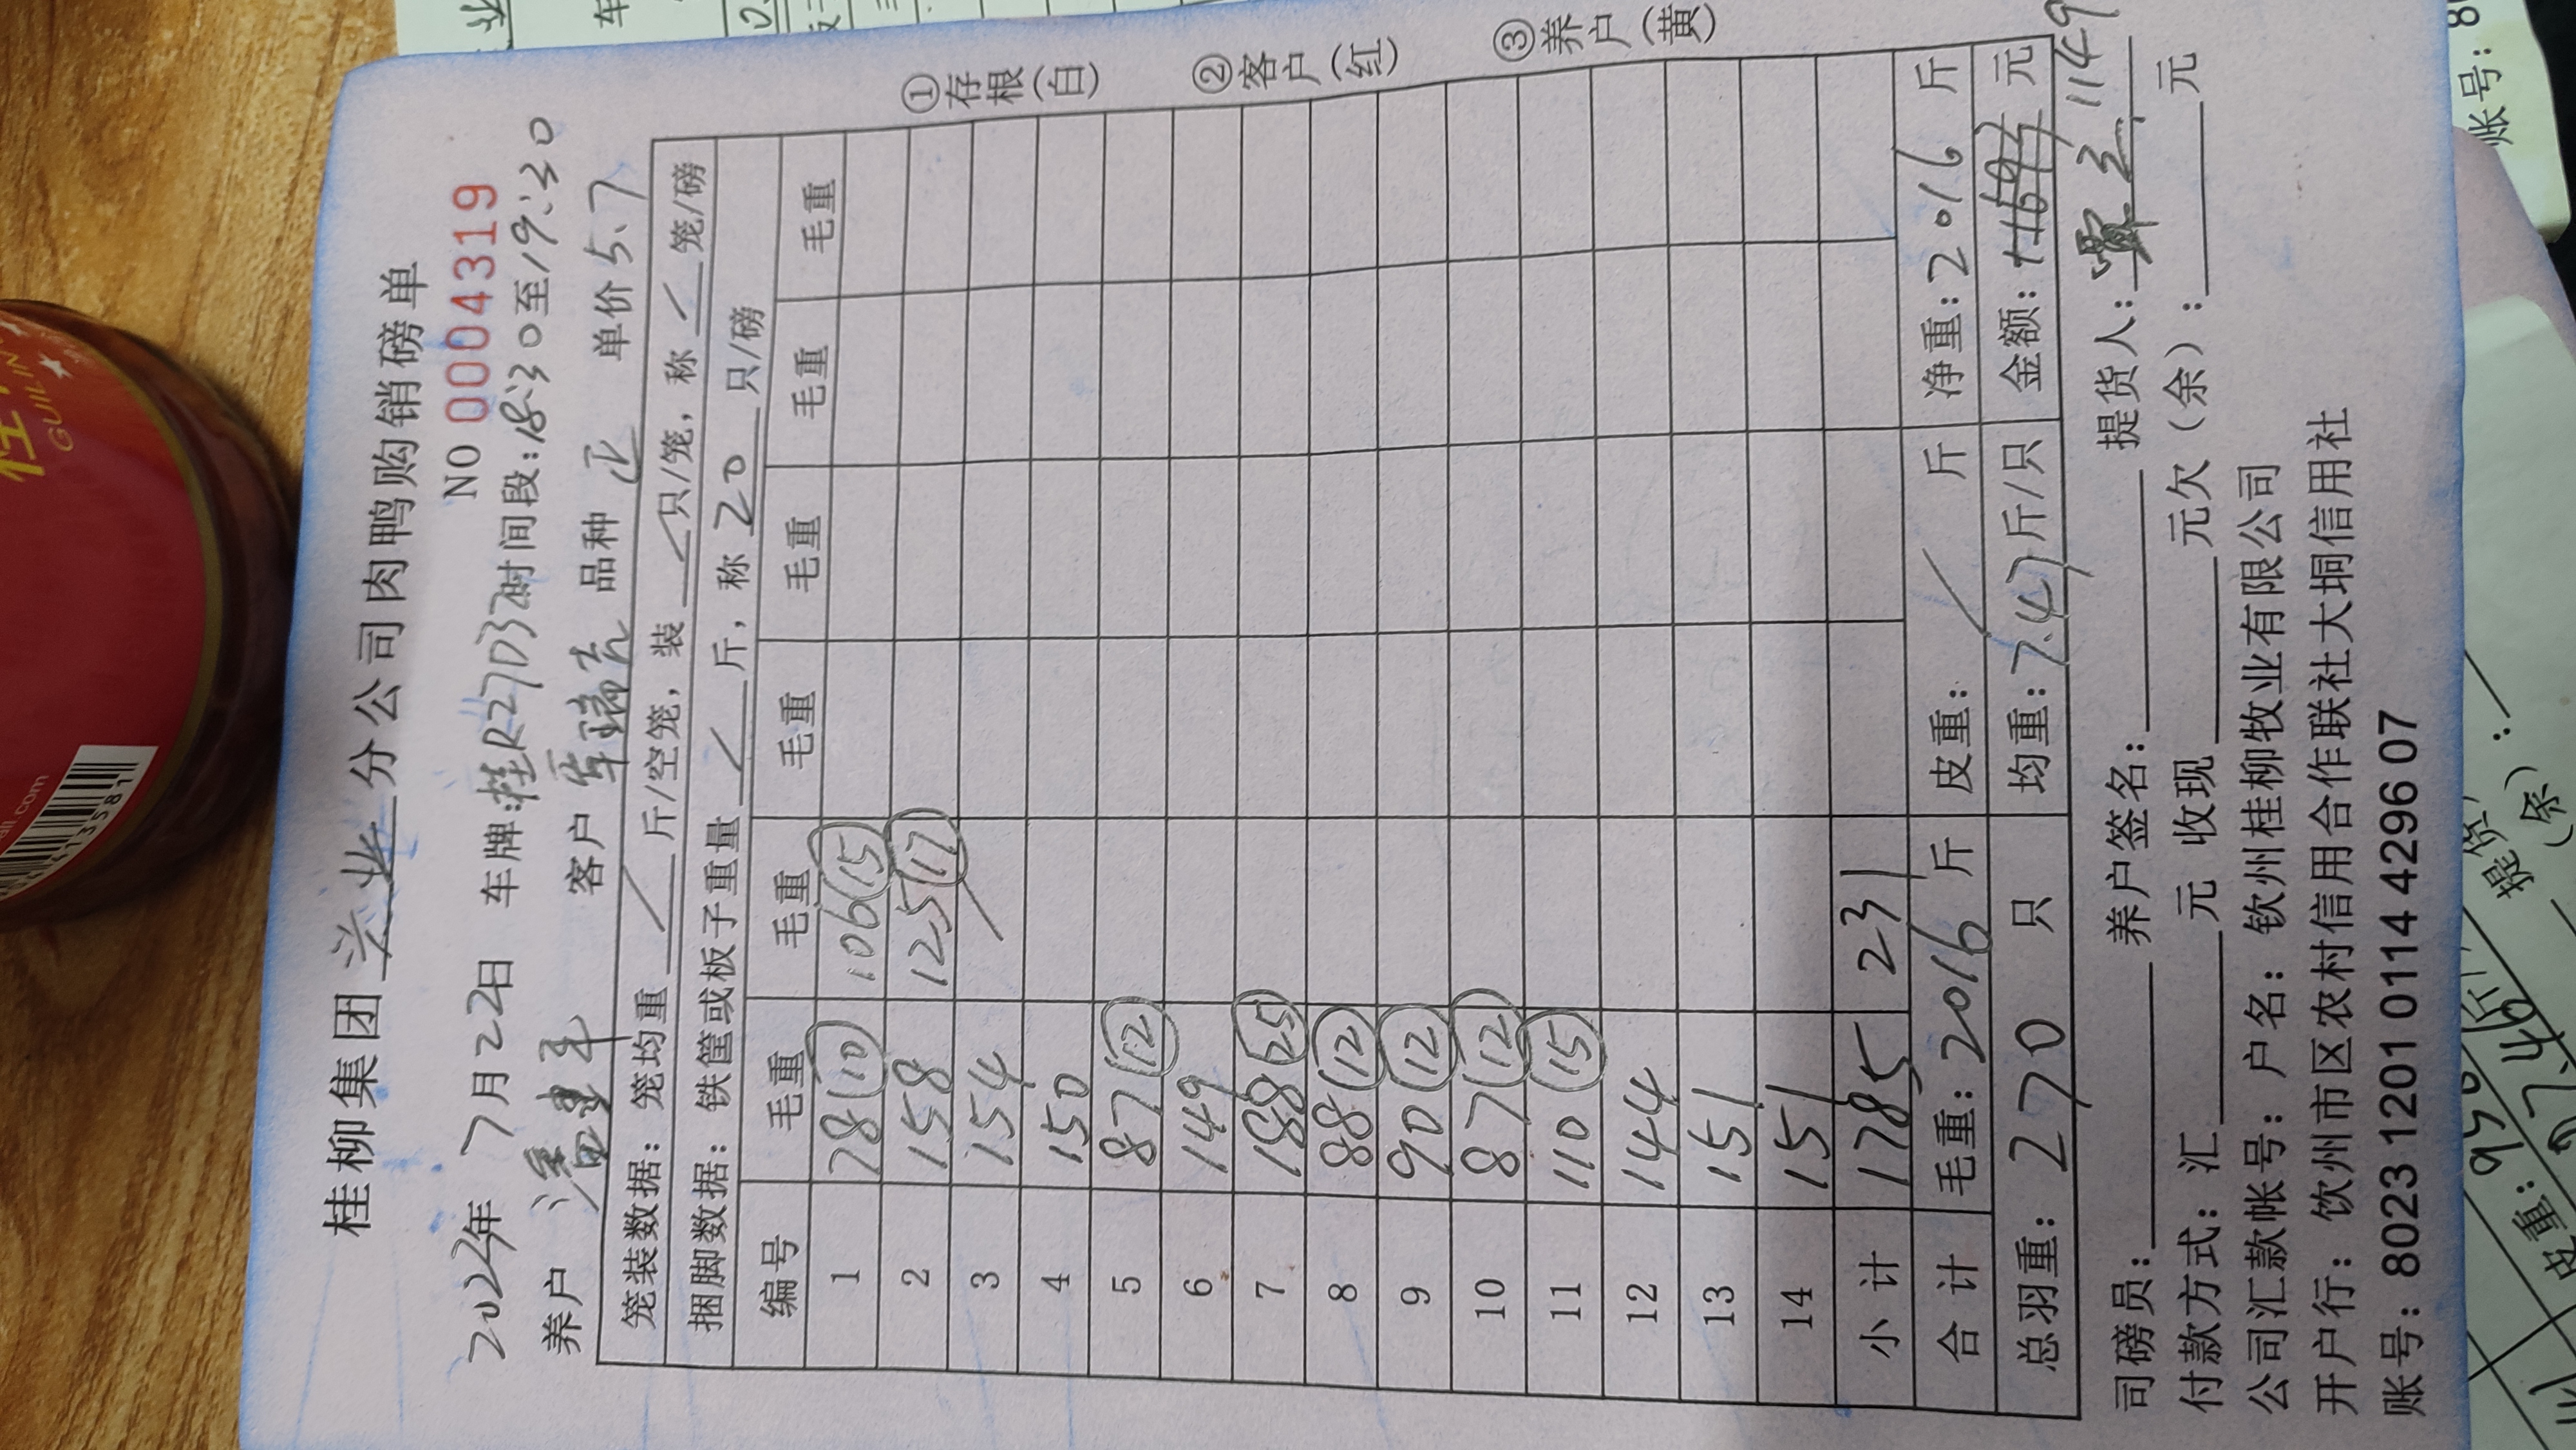 桂柳集团 兴业 分公司肉鸭购销磅单
NO 00004319
2022年 7月22日 车牌:桂R27D32时间段:18:30至19:30
养户 客户 品种 正 单价 5.7
笼装数据: 笼均重 / 斤/空笼, 装 / 只/笼, 称 / 笼/磅
捆脚数据: 铁筐或板子重量 / 斤, 称 20 只/磅
编号 毛重 毛重 毛重 毛重 毛重 毛重
1 78(10) 106(15)
2 158 125(17)
3 154 /
4 150
5 87(12)
6 149
7 188(25)
8 88(12)
9 90(12)
10 87(12)
11 110(15)
12 144
13 151
14 151
小计 1785 231
合计 毛重: 2016 斤 皮重: / 斤 净重: 2016 斤
总羽重: 270 只 均重: 7.47 斤/只 金额: 元
11491
司磅员: 养户签名: 提货人:
付款方式: 汇 元 收现 元欠(余): 元
公司汇款帐号: 户名: 钦州桂柳牧业有限公司
开户行: 钦州市区农村信用合作联社大垌信用社
账号: 8023 1201 0114 4296 07
①存根(白)
②客户(红)
③养户(黄)
GUILIN
账号: 8
皮重: 950